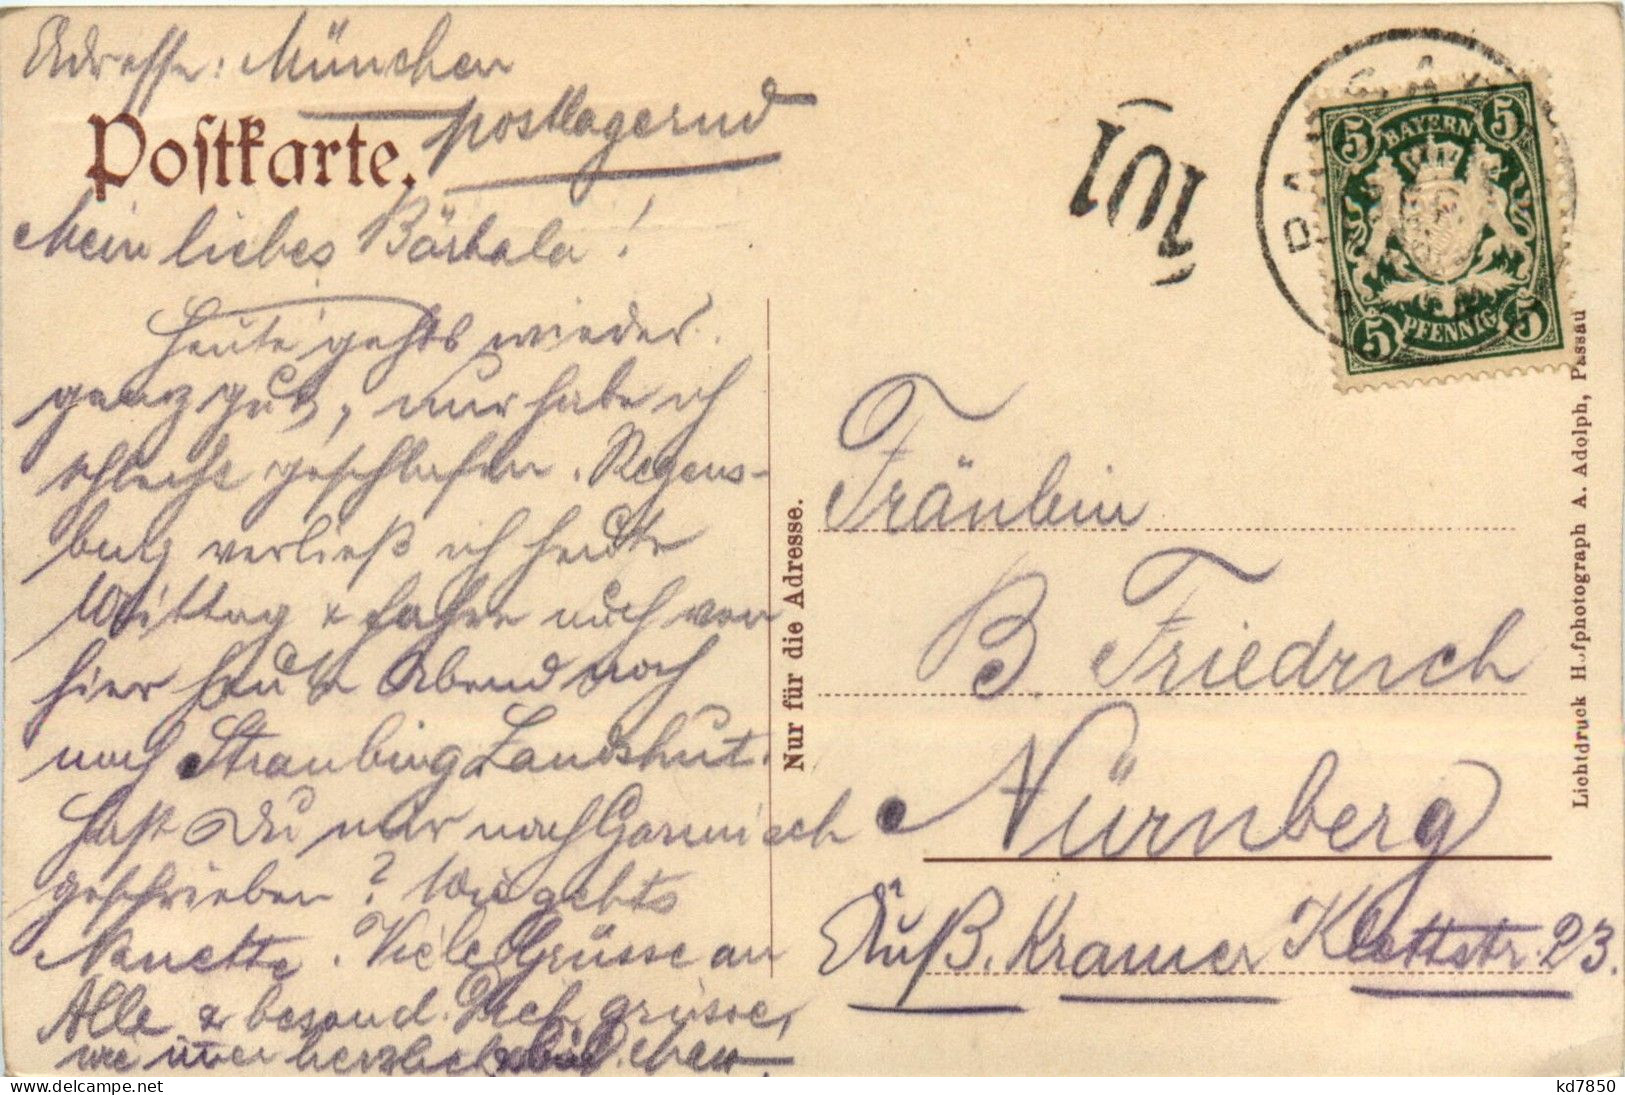 Adresse: München
postlagernd
Postkarte.
Mein liebes Bärbala!
Heute gehts wieder
ganz gut, nur habe ich
schlecht geschlafen. Regens-
burg verließ ich heute
Mittag & fahre noch von
hier heute Abend noch
nach Straubing Landshut.
Hast Du mir nach Garmisch
geschrieben? Wie gehts
Nanette. Viele Grüsse an
Alle & besond. Dich grüsse,
wie immer herzlich
Nur für die Adresse.
101
PASSAU
5 BAYERN 5
5 PFENNIG 5
Fräulein
B. Friedrich
Nürnberg
Äuß. Kramer Klettstr. 23.
Lichtdruck Hofphotograph A. Adolph, Passau
kd7850